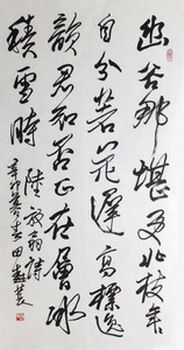 幽谷那堪更北枝年
自分著花遲高標逸
韻君知否正在層冰
積雪時 陸放翁詩
辛卯暮春田樹萇